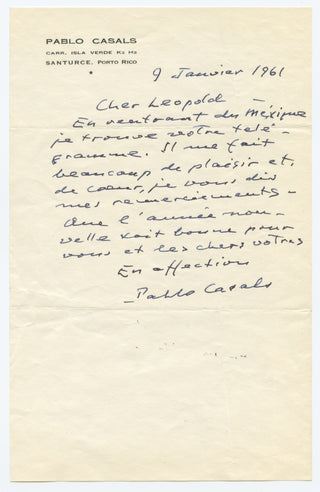 PABLO CASALS
CARR. ISLA VERDE K2 H3
SANTURCE, PORTO RICO
9 Janvier 1961
Cher Leopold
En rentrant du Méxique
je trouve votre télé-
gramme. Il me fait
beaucoup de plaisir et,
de cœur, je vous dis
mes remerciements-
Que l'année nou-
velle soit bonne pour
vous et les chers votres
En affection
Pablo Casals